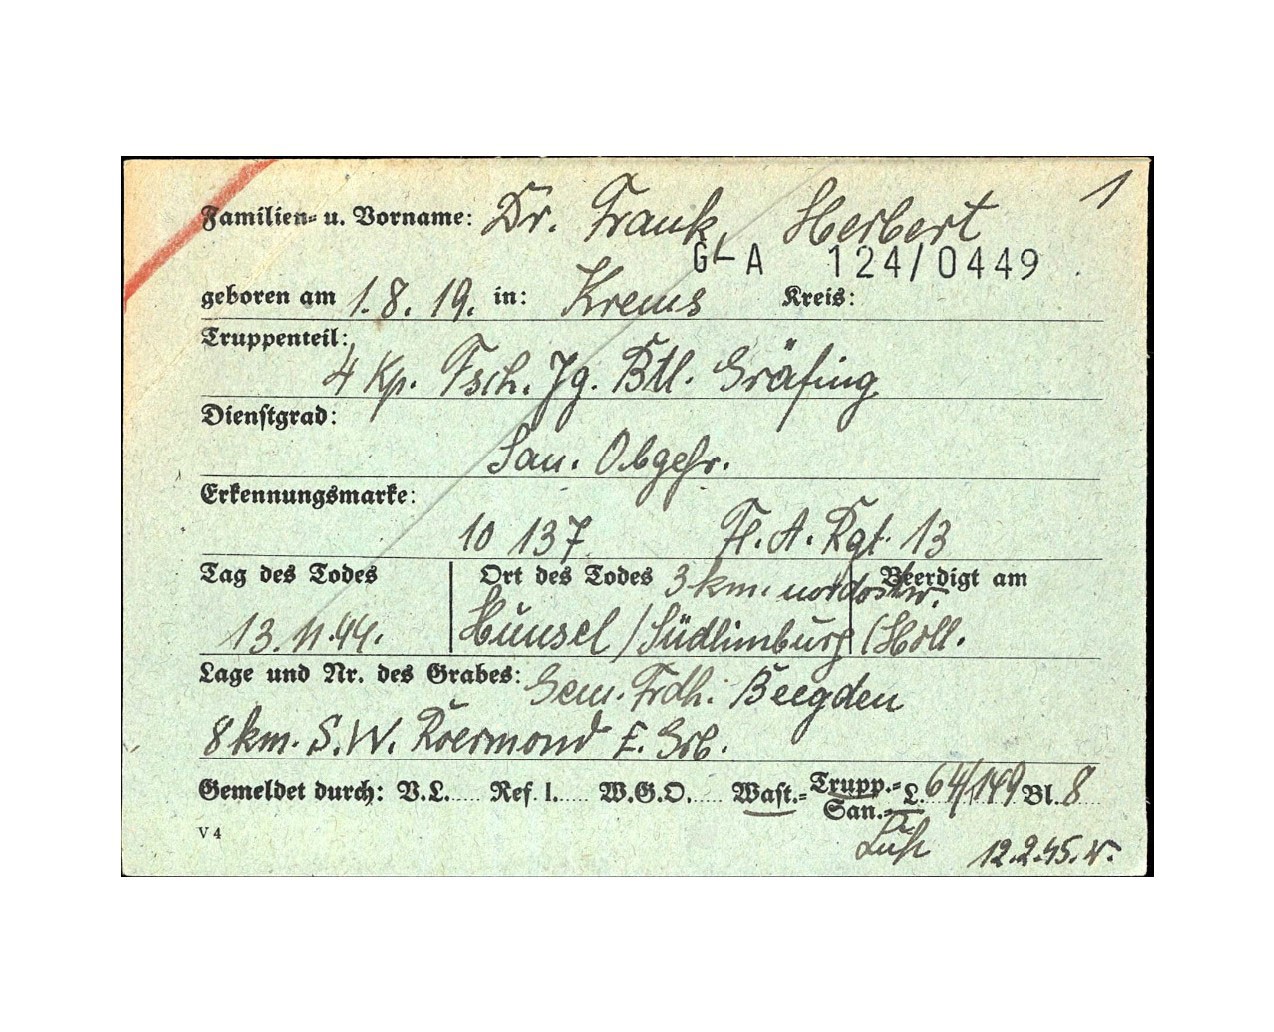 1
Familien- u. Vorname: Dr. Frank, Herbert
G-A 124/0449
geboren am 1.8.19. in: Krems Kreis:
Truppenteil:
4 Kp. Fsch. Jg. Btl. Gräfing
Dienstgrad:
San. Obgefr.
Erkennungsmarke:
10 137 Fl. A. Rgt. 13
Tag des Todes Ort des Todes 3 km. nordostw. Beerdigt am
13.11.44. Hunsel / Südlimburg / Holl.
Lage und Nr. des Grabes: Gem. Frdh. Beegden
8 km. S.W. Roermond E. Grb.
Gemeldet durch: V.L. Ref. 1. W.G.O. Wast.- Trupp.- San.- L. 64/149 Bl. 8
Luft 12.2.45.
V 4